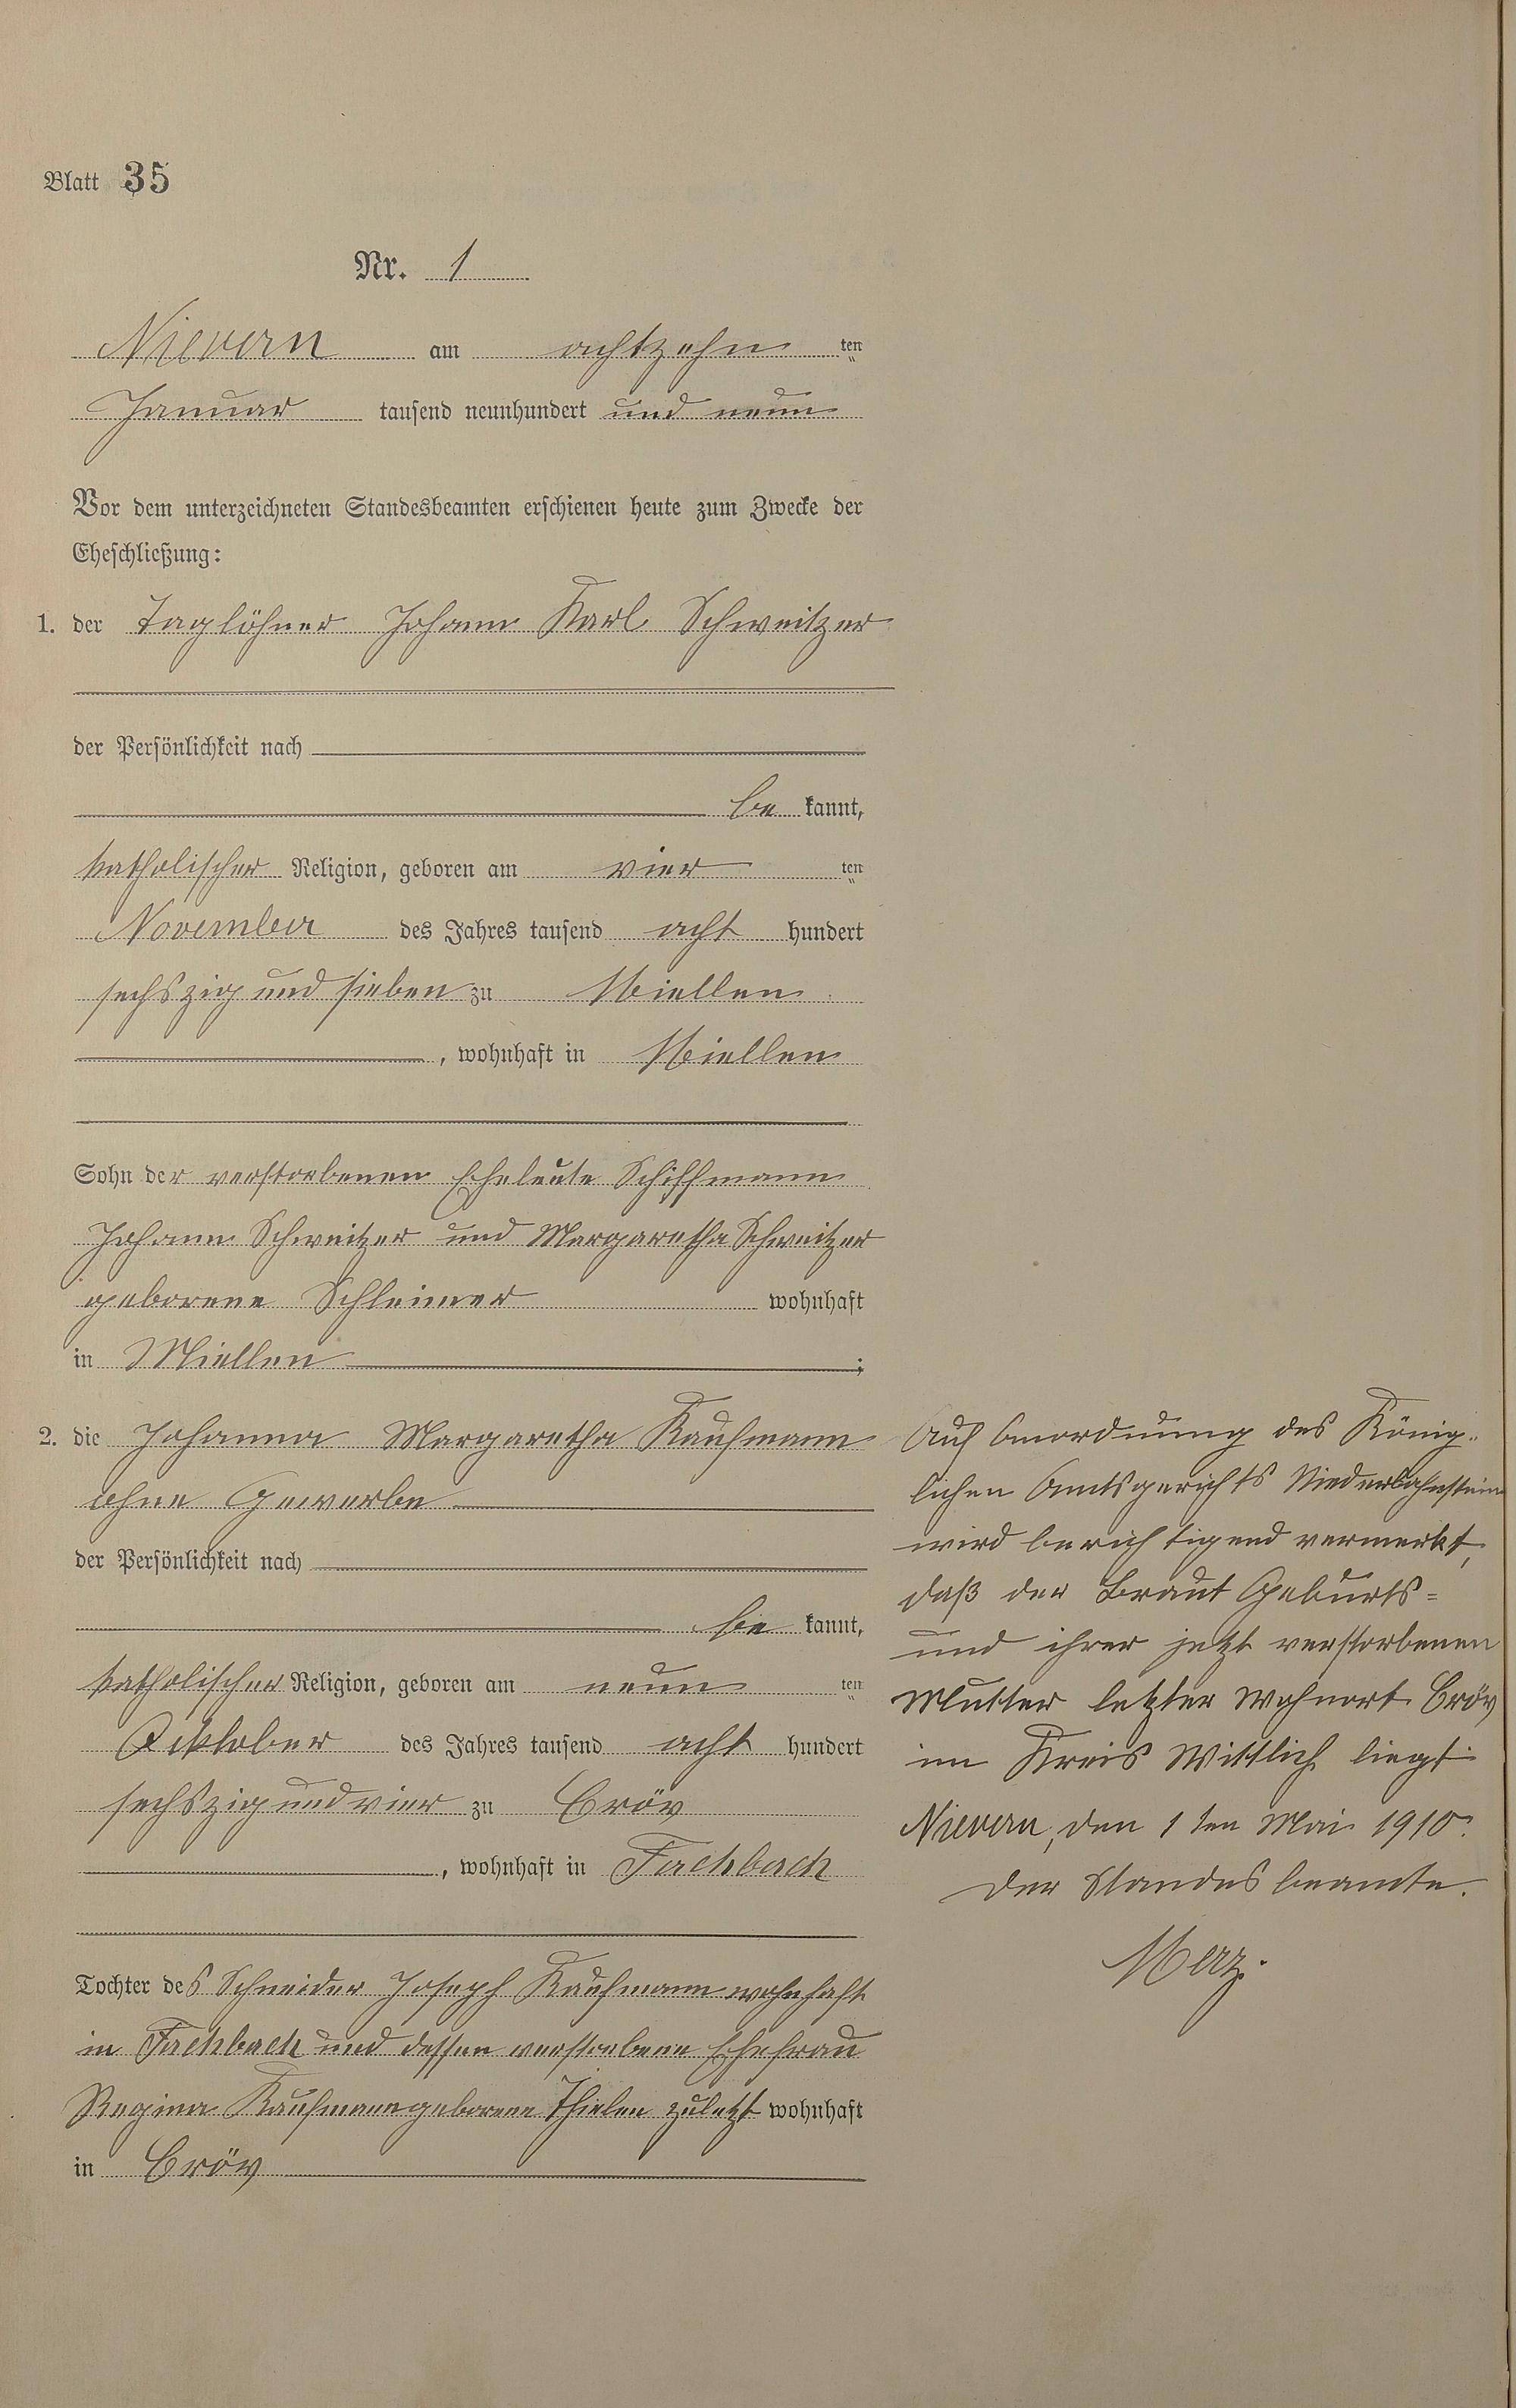 Blatt 35
Nr. 1
Nievern am achtzehn ten
Januar tausend neunhundert und neun
Vor dem unterzeichneten Standesbeamten erschienen heute zum Zwecke der
Eheschließung:
1. der Taglöhner Johann Karl Schweitzer
der Persönlichkeit nach
be kannt,
katholischer Religion, geboren am vier ten
November des Jahres tausend acht hundert
sechszig und sieben zu Miellen
, wohnhaft in Miellen
Sohn der verstorbenen Eheleute Schiffmann
Johann Schweitzer und Margaretha Schweitzer
geborene Schleimer wohnhaft
in Miellen ;
2. die Johanna Margaretha Kaufmann
ohne Gewerbe
der Persönlichkeit nach
be kannt,
katholischer Religion, geboren am neun ten
Oktober des Jahres tausend acht hundert
sechszig und vier zu Cröv
, wohnhaft in Fachbach
Tochter des Schneider Joseph Kaufmann wohnhaft
in Fachbach und dessen verstorbene Ehefrau
Regina Kaufmann geborene Thielen zuletzt wohnhaft
in Cröv
Auf Anordnung des König-
lichen Amtsgerichts Niederlahnstein
wird berichtigend vermerkt,
daß der Braut Geburts=
und ihrer jetzt verstorbenen
Mutter letzter Wohnort Cröv
im Kreis Wittlich liegt.
Nievern, den 1ten Mai 1910.
Der Standesbeamte.
Merz.